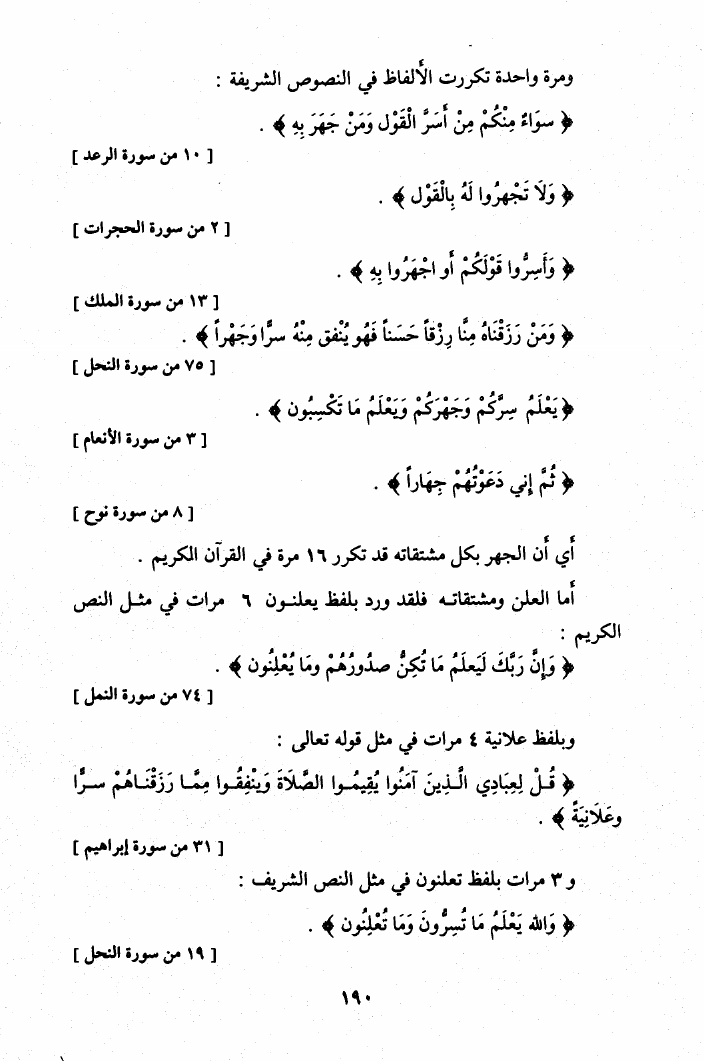 ومرة واحدة تكررت الألفاظ في النصوص الشريفة :
﴿ سوَاءٌ مِنْكُمْ مِنْ أَسَرَّ الْقَوْل وَمَنْ جَهَرَ بِهِ ﴾ .
[ ١٠ من سورة الرعد ]
﴿ وَلَا تَجْهرُوا لَهُ بِالْقَوْلِ ﴾ .
[ ٢ من سورة الحجرات ]
﴿ وَأَسِرُّوا قَوْلَكُمْ أو اجْهَرُوا بِهِ ﴾ .
[ ١٣ من سورة الملك ]
﴿ وَمَنْ رَزَقْنَاهُ مِنَّا رِزْقاً حَسَناً فَهُو يُنْفق مِنْهُ سرًّا وَجَهْراً ﴾ .
[ ٧٥ من سورة النحل ]
﴿ يَعْلَمُ سِرَّكُمْ وَجَهْرَكُمْ وَيَعْلَمُ مَا تَكْسِبُون ﴾ .
[ ٣ من سورة الأنعام ]
﴿ ثُمَّ إني دَعَوْتُهُمْ جِهَاراً ﴾ .
[ ٨ من سورة نوح ]
أي أن الجهر بكل مشتقاته قد تكرر ١٦ مرة في القرآن الكريم .
أما العلن ومشتقاته فلقد ورد بلفظ يعلنون ٦ مرات في مثل النص
الكريم :
﴿ وَإِنَّ رَبَّكَ لَيَعلَمُ مَا تُكِنُّ صدُورُهُمْ ومَا يُعْلِنُون ﴾ .
[ ٧٤ من سورة النمل ]
وبلفظ علانية ٤ مرات في مثل قوله تعالى :
﴿ قُلْ لِعِبَادِي الَّذِينَ آمَنُوا يُقِيمُوا الصَّلَاةَ وَيَنْفِقُوا مِمَّا رَزَقْنَاهُمْ سرًّا
وعَلَانِيَةً ﴾ .
[ ٣١ من سورة إبراهيم ]
و ٣ مرات بلفظ تعلنون في مثل النص الشريف :
﴿ وَالله يَعْلَمُ مَا تُسِرُّونَ وَمَا تُعْلِنُون ﴾ .
[ ١٩ من سورة النحل ]
١٩٠